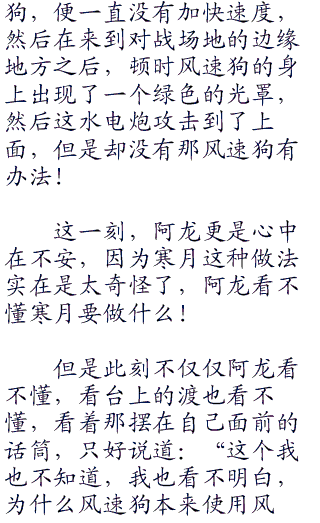 狗，便一直没有加快速度，
然后在来到对战场地的边缘
地方之后，顿时风速狗的身
上出现了一个绿色的光罩，
然后这水电炮攻击到了上
面，但是却没有那风速狗有
办法！
这一刻，阿龙更是心中
在不安，因为寒月这种做法
实在是太奇怪了，阿龙看不
懂寒月要做什么！
但是此刻不仅仅阿龙看
不懂，看台上的渡也看不
懂，看着那摆在自己面前的
话筒，只好说道：“这个我
也不知道，我也看不明白，
为什么风速狗本来使用风